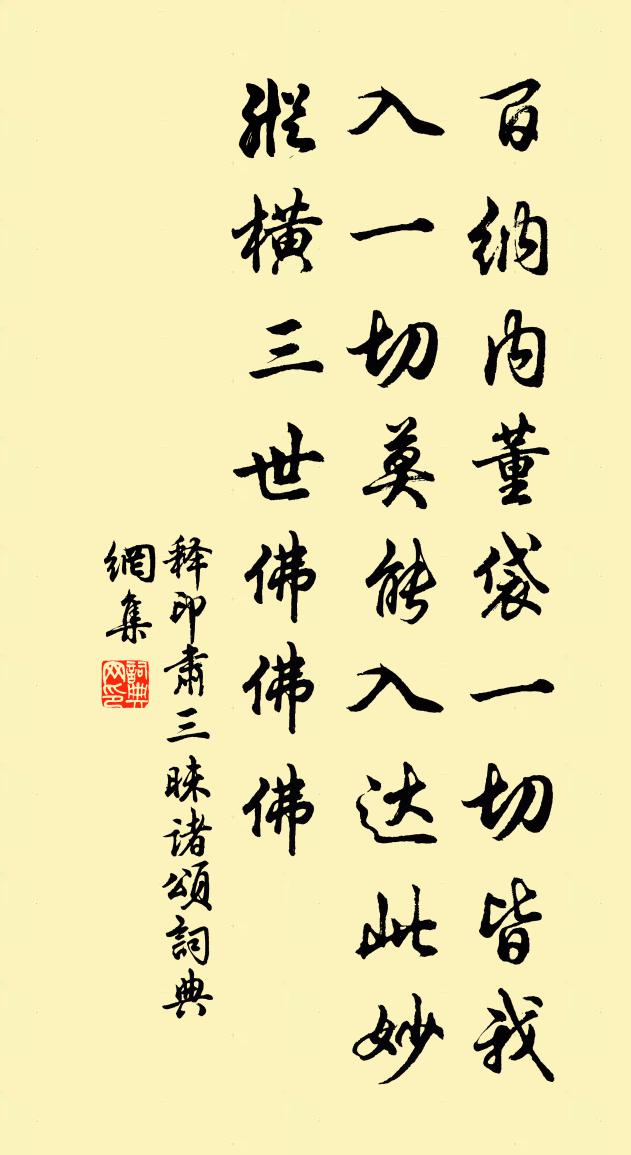 百纳内董袋一切皆我
入一切莫能入达此妙
縱横三世佛佛佛
释印肃三昧诸颂詞典
網集
詞典网印